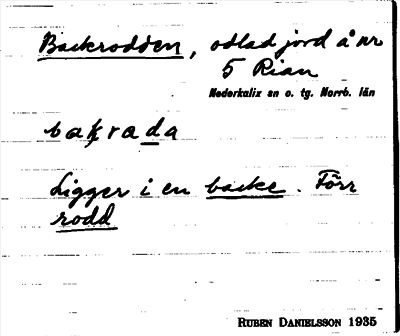 Backrodden, odlad jord å nr
5 Rian
Nederkalix sn o. tg. Norrb. län
bakrada
Ligger i en backe. Förr
rodd
RUBEN DANIELSSON 1935